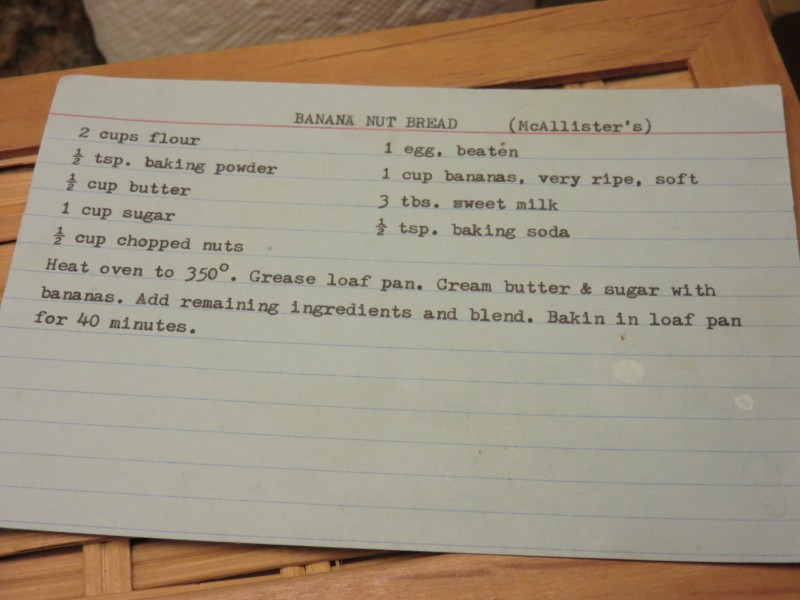 BANANA NUT BREAD (McAllister's)
2 cups flour
½ tsp. baking powder
½ cup butter
1 cup sugar
½ cup chopped nuts
1 egg, beaten
1 cup bananas, very ripe, soft
3 tbs. sweet milk
½ tsp. baking soda
Heat oven to 350°. Grease loaf pan. Cream butter & sugar with
bananas. Add remaining ingredients and blend. Bakin in loaf pan
for 40 minutes.